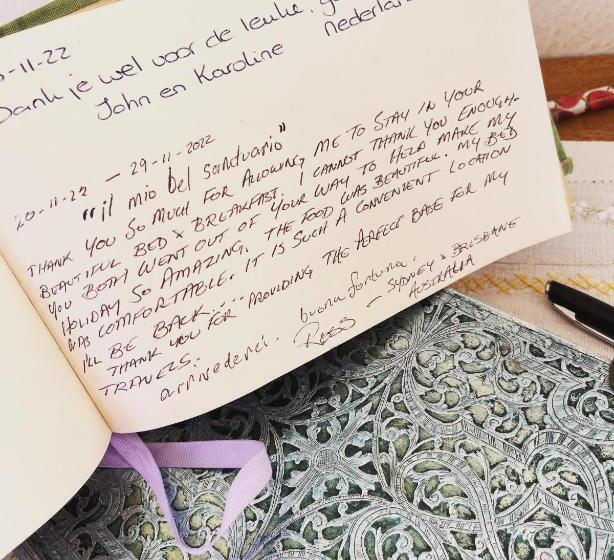 -11-22
Dank je wel voor de leuke
John en Karoline Nederland
20-11-22 — 29-11-2022
"il mio bel santuario"
THANK YOU SO MUCH FOR ALLOWING ME TO STAY IN YOUR
BEAUTIFUL BED & BREAKFAST. I CANNOT THANK YOU ENOUGH.
YOU BOTH WENT OUT OF YOUR WAY TO HELP MAKE MY
HOLIDAY SO AMAZING. THE FOOD WAS BEAUTIFUL. MY BED
WAS COMFORTABLE. IT IS SUCH A CONVENIENT LOCATION
I'LL BE BACK....
THANK YOU FOR PROVIDING THE PERFECT BASE FOR MY
TRAVELS.
arrivederci. buona fortuna.
ROSS — SYDNEY & BRISBANE
AUSTRALIA